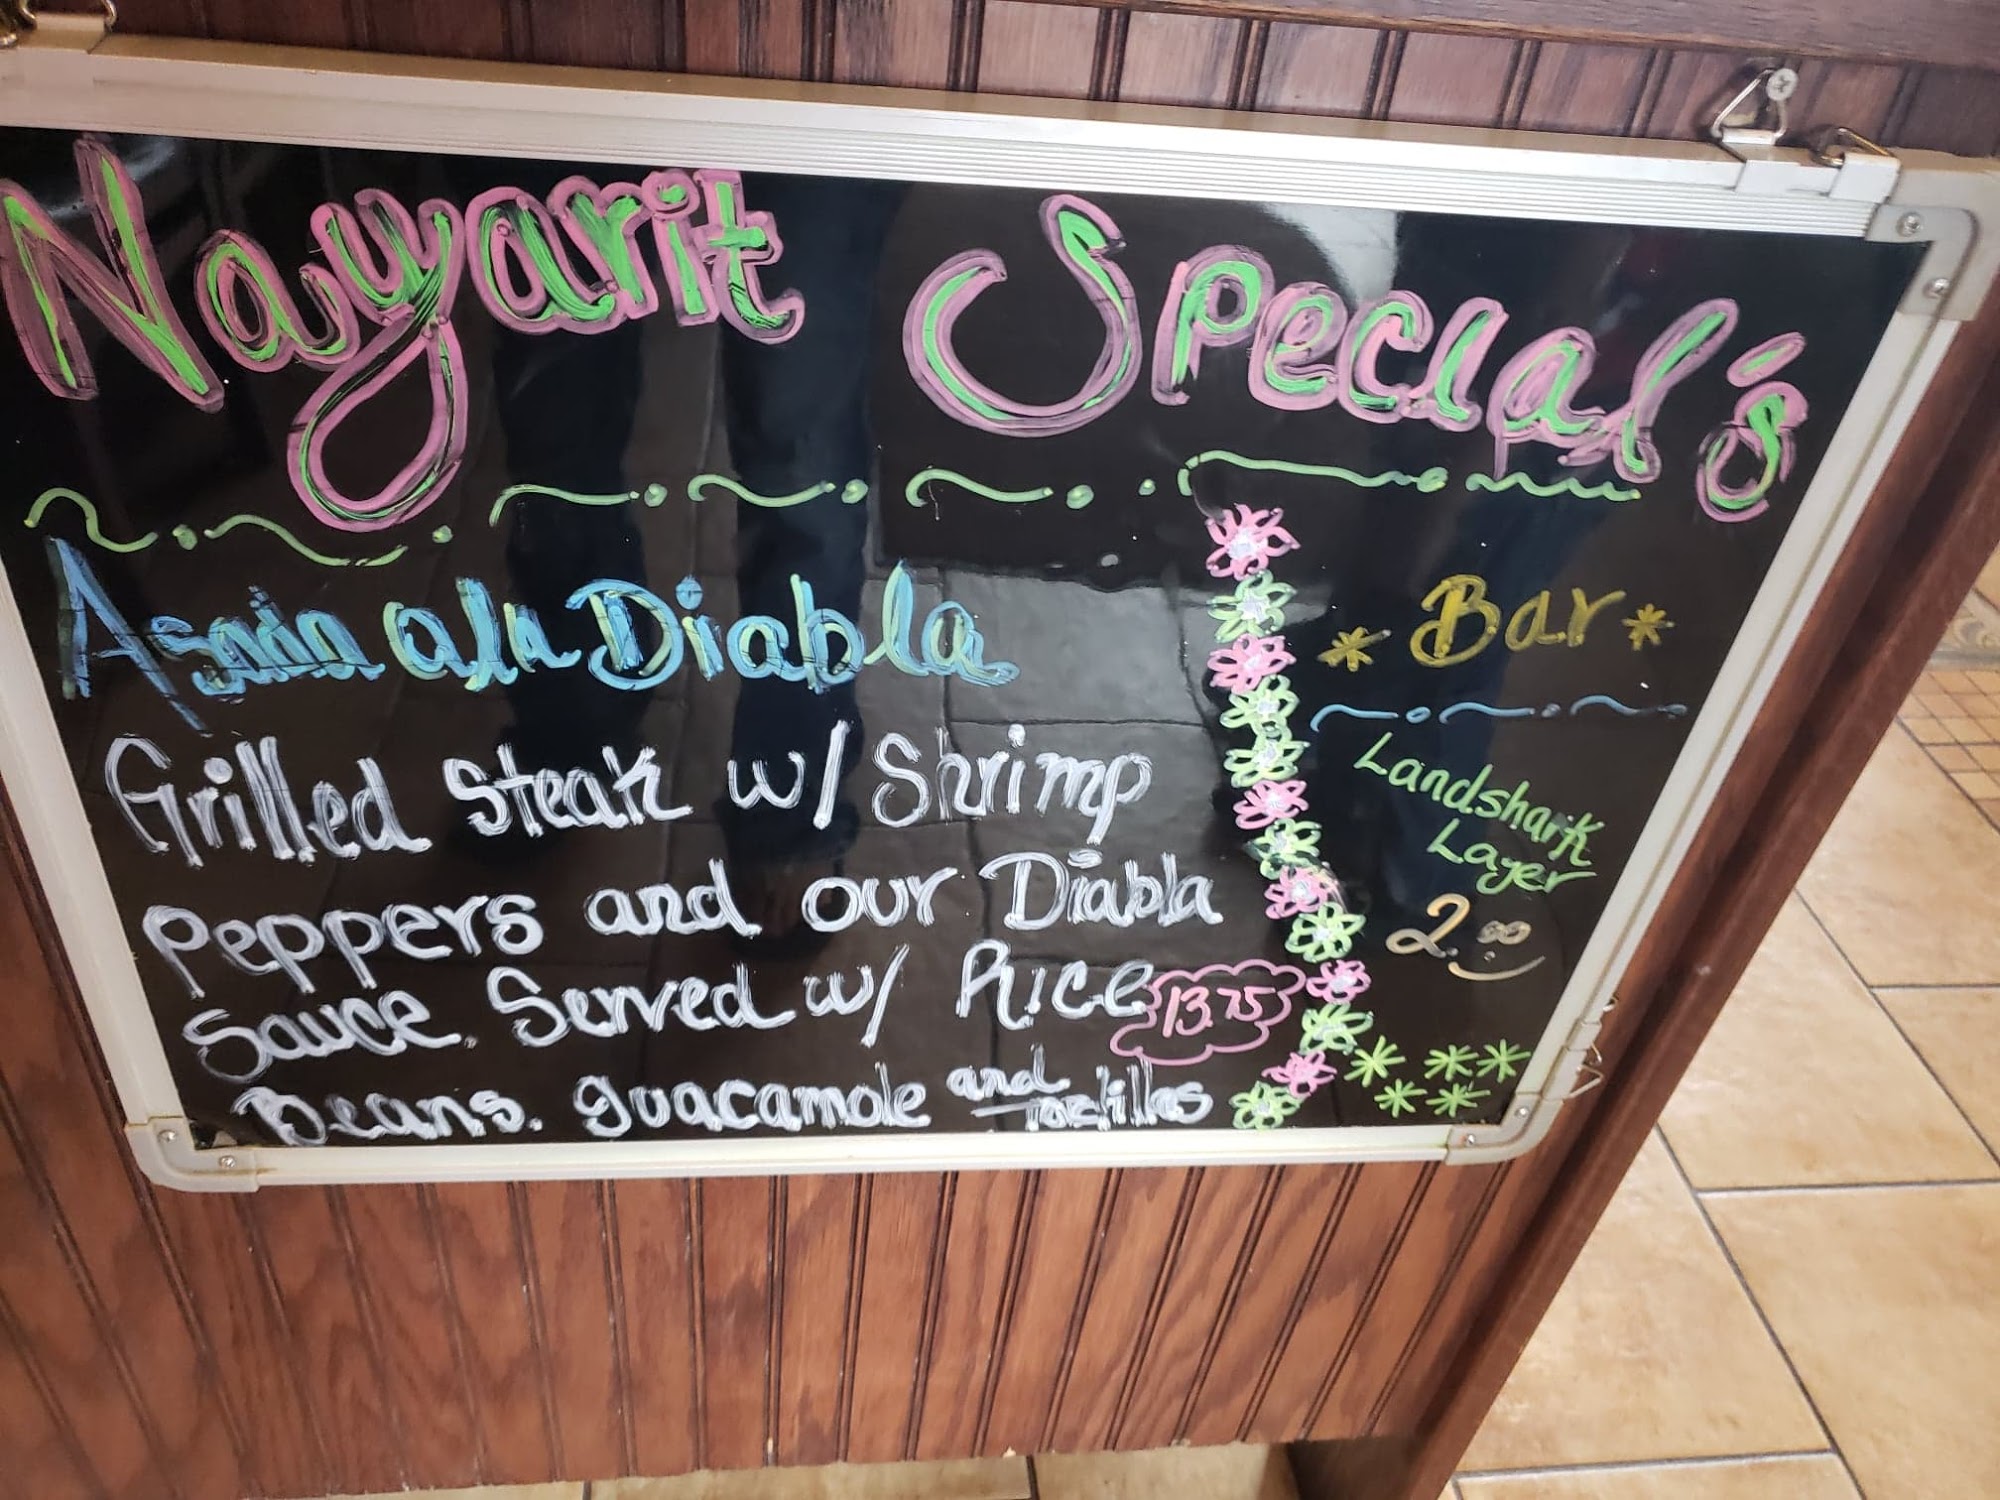 Nayarit Special's
Asada ala Diabla
Grilled Steak w/ Shrimp
Peppers and our Diabla
Sauce. Served w/ Rice
Beans. guacamole and Tortillas
13.75
* Bar *
Landshark
Layer
2.00